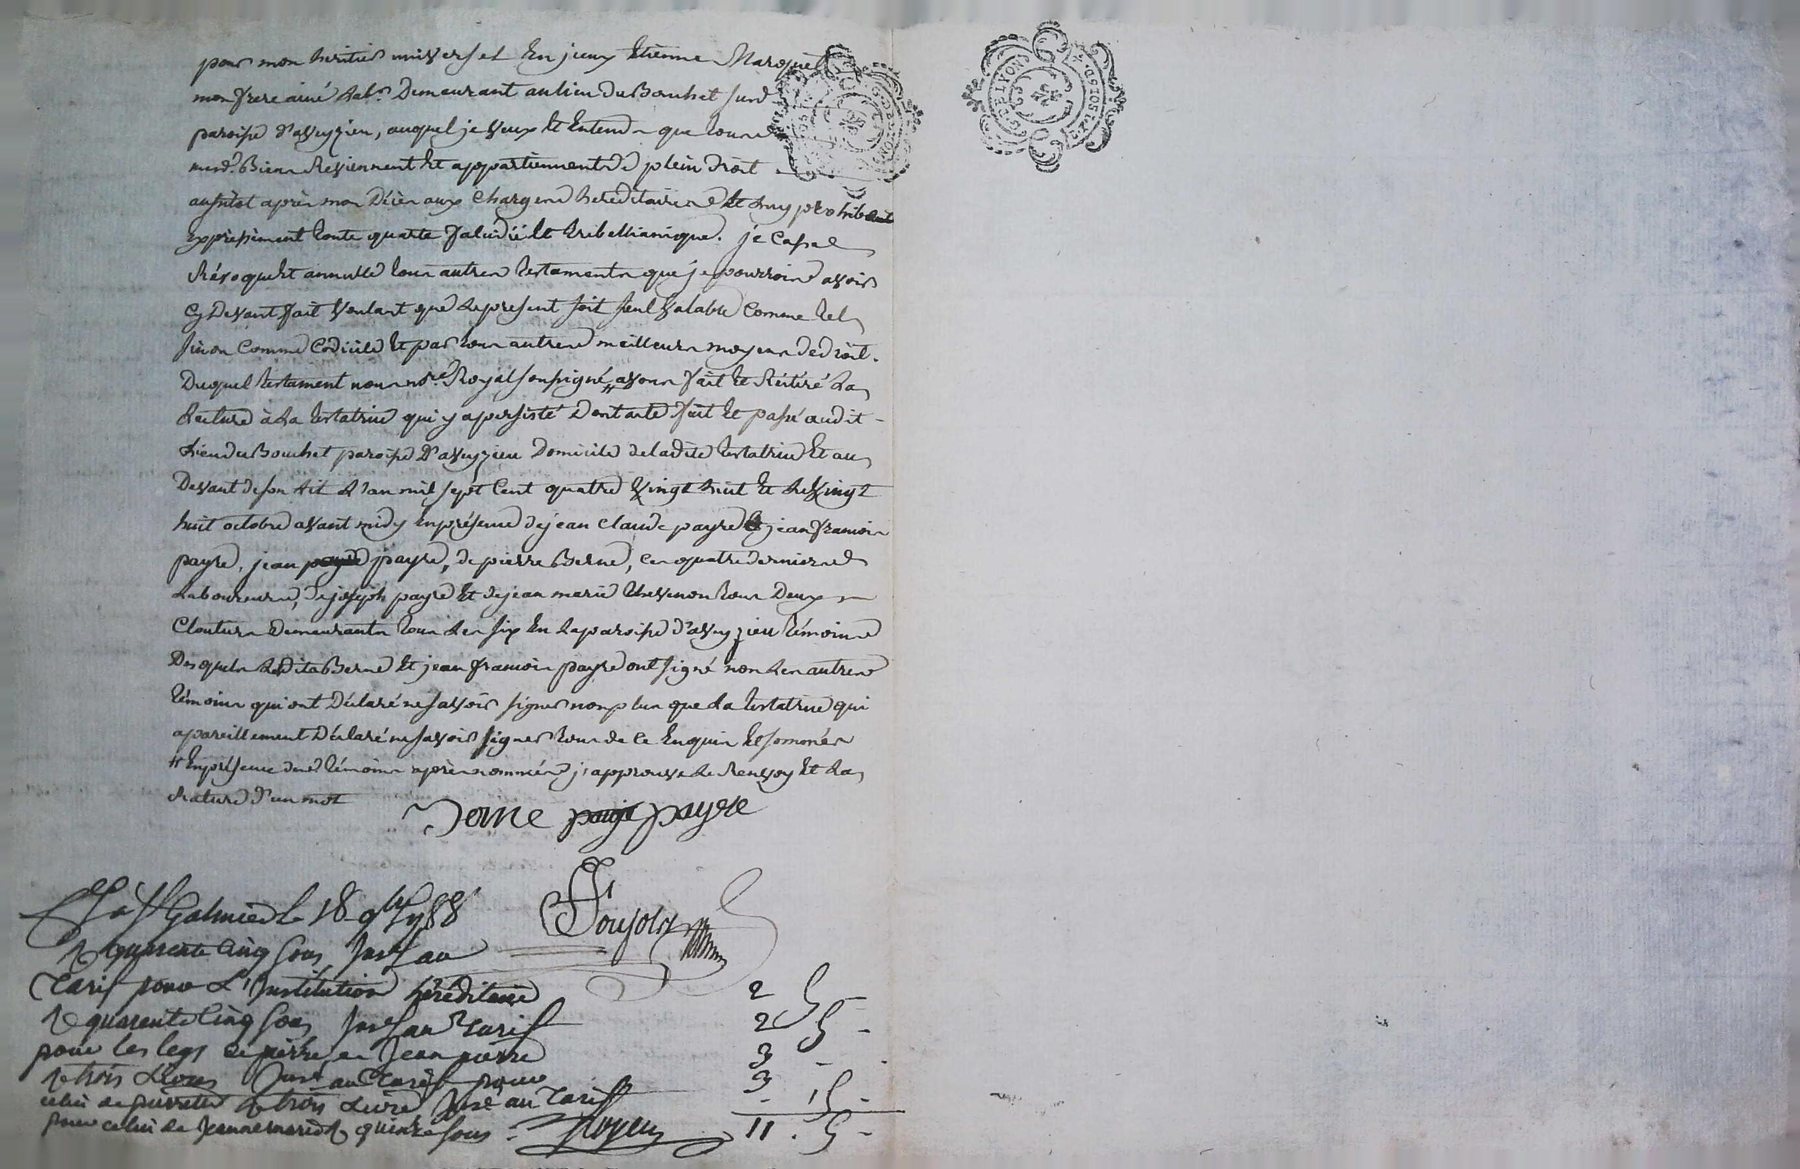 pour mon heritier universel En jceux Etienne Maroquet
mon frere ainé Lab.r Demeurant au lieu du Bouchet susd
paroisse d'aveyzieu, auquel je veux Et Entend que tous
mesd. Biens Reviennent Et appartiennent de plein droit
aussitot après mon Décès aux Charges hereditaires Et luy prohibant
Expressément toute quarte falcidie Et trebellianique. je Casse
Révoque Et annulle tous autres testaments que je pourrois avoir
Cy Devant fait Voulant que Le present soit seul valable Comme tel
sinon Comme Codicile Et par tous autres meilleurs moyens de droit.
Duquel testament nous no.re Royal soussigné avons fait Et Réitéré La
Lecture à La testatrice qui y a persisté Dont acte fait Et passé audit
Lieu du Bouchet paroisse D'aveyzieu Domicile de ladite testatrice Et au
Devant de son Lit L'an mil sept Cent quatre vingt huit Et Le vingt
huit octobre avant midy En présence de jean Claude payre jean françois
payre, jean payre, de pierre Berne, Ces quatre derniers
Laboureurs, de joseph payre Et de jean marie thevenon tous Deux
Cloutiers Demeurants tous Les six En La paroisse d'aveyzieu témoins
Desquels Ledit Berne Et jean françois payre ont signé non Les autres
témoins qui ont Déclaré ne savoir signer non plus que La testatrice qui
a pareillement Déclaré ne savoir signer tous de Ce Enquis Et sommés
# En présence desd témoins après nommés j'approuve Le Renvoy Et La
Rature d'un mot
Berne payre
Poujol
C.té à S.t Galmier Le 18 9bre 1788
R quarente Cinq sous sur au
Tarif pour L'Institution héréditaire 2 5 -
R quarente Cinq sous sur au tarif 2 5 -
pour les legs de pierre et Jean pierre 3 - -
R trois Livres sur au tarif pour 3
celui de pierrette R trois Livre sur au Tarif - 15 -
pour celui de Jeanne marie R quinze sous 11 . 5 -
G. DE LYON